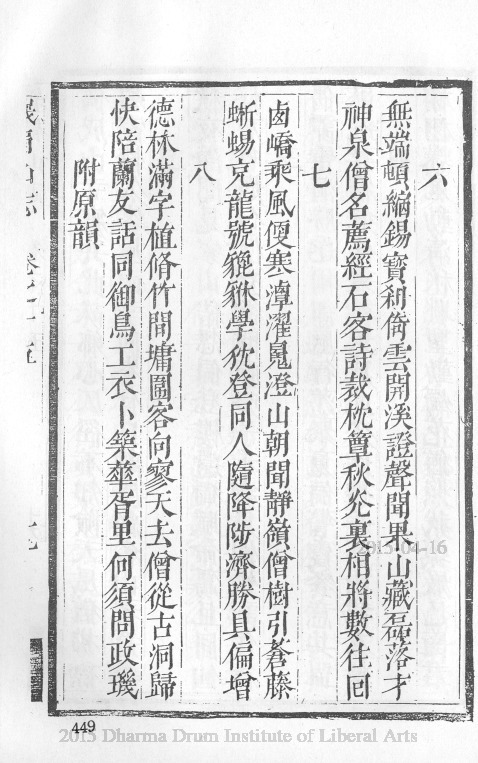 六
無端頓縮錫寶剎倚雲開溪證聲聞果山藏磊落才
神泉僧名薦經石客詩裁枕簟秋光裏相將數往回
七
鹵嶠乘風便寒潭濯魄澄山朝聞靜嶺僧樹引蒼藤
蜥蜴克龍號貔貅學犹登同人隨降陟濟勝具偏增
八
德林滿字植脩竹間墉圍客向寥天去僧從古洞歸
快陪蘭友話同御鳥工衣卜築華胥里何須問政璣
附原韻
山志 卷之
449
2015-04-16
2015 Dharma Drum Institute of Liberal Arts